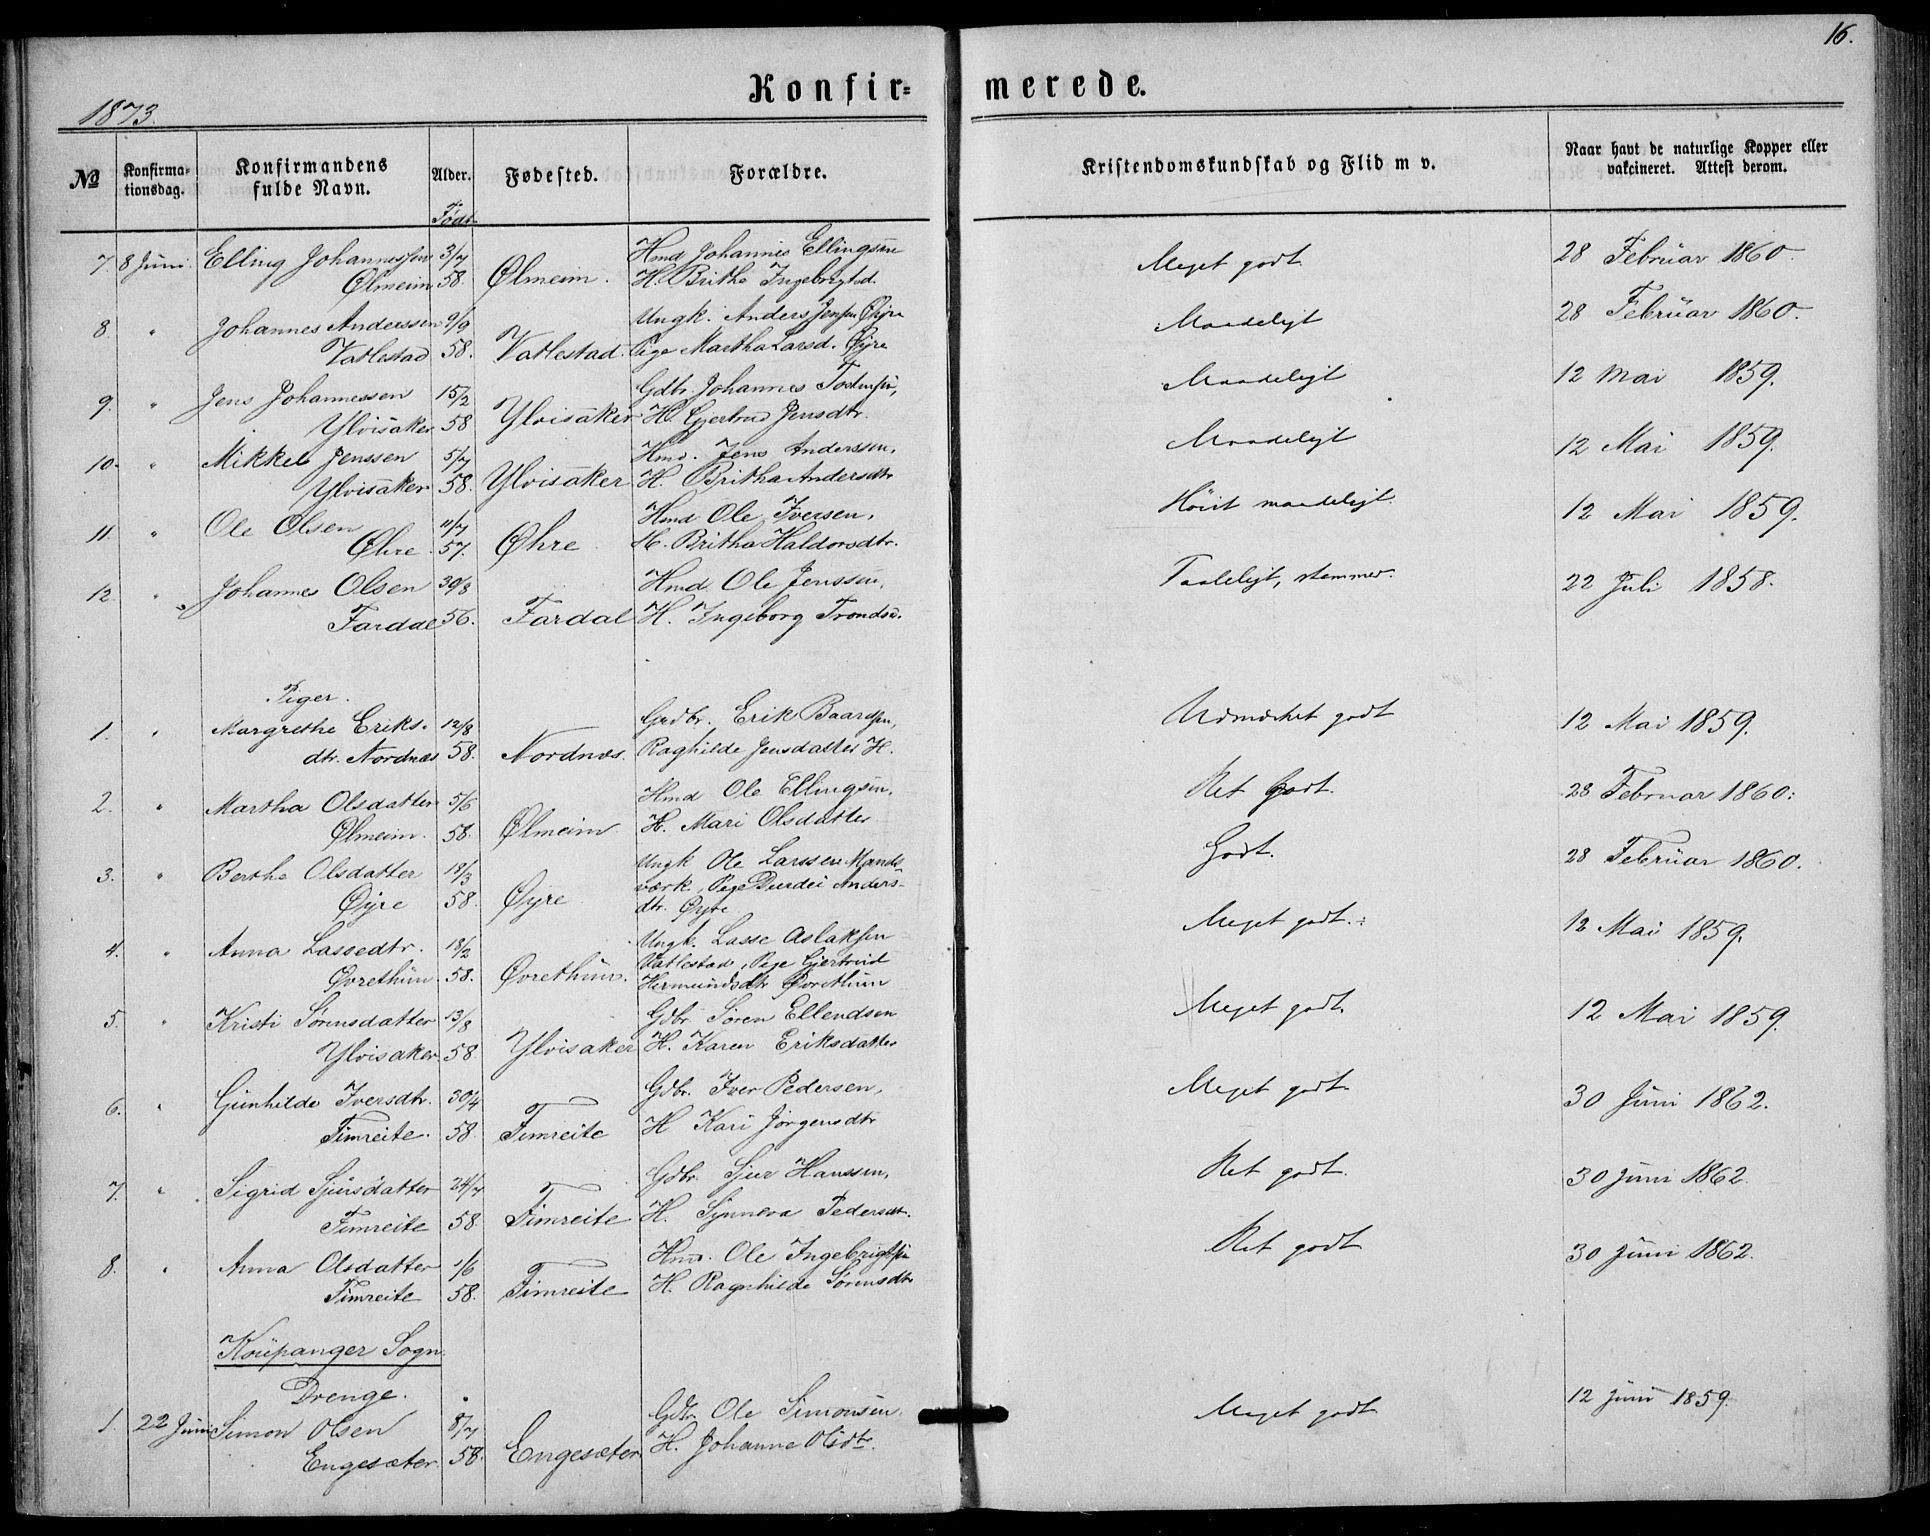 16.
Konfir=merede.
1873.
№ Konfirma=tionsdag. Konfirmandens fulde Navn. Alder. Fødested. Forældre. Kristendomskundskab og Flid m v. Naar havt de naturlige Kopper eller vakcineret. Attest derom.
Født
7. 8 Juni. Elling Johannessen 3/7 Hmd Johannes Ellingsen Meget godt 28 Februar 1860.
Ølmeim 58. Ølmeim. H. Brithe Ingebrigtsd.
8. " Johannes Anderssen 9/9 Ungk. Anders Jensen Øyre Maadeligt 28 Februar 1860.
Vatlestad 58. Vatlestad. Pige Martha Larsd. Øyre
9. " Jens Johannessen 15/2 Gdbr. Johannes Maadeligt 12 Mai 1859.
Ylvisaker 58 Ylvisaker H. Gjertrud Jensdtr.
10. " Mikkel Jenssen 5/7 Hmd. Jens Anderssen, Maadeligt 12 Mai 1859.
Ylvisaker 58. Ylvisaker H. Britha Andersdtr
11. " Ole Olsen 11/7 Hmd Ole Iversen, Høist maadeligt. 12 Mai 1859.
Øhre 57. Øhre H. Britha Haldorsdtr.
12. " Johannes Olsen 30/8 Hmd Ole Jenssen, Taaleligt, stammer. 22 Juli 1858.
Fardal 56. Fardal H. Ingeborg Trondsd.
Piger.
1. " Margrethe Eriks. 12/8 Grdbr. Erik Baardsen, Udmærket godt 12 Mai 1859.
dtr. Nordnæs 58. Nordnæs. Raghilde Jensdatter H.
2. " Martha Olsdatter 5/6 Hmd Ole Ellingsen, Ret Godt. 28 Februar 1860:
Ølmeim. 58. Ølmeim. H. Mari Olsdatter
3. " Berthe Olsdatter 18/3 Ungk Ole Larssen Mands- Godt. 28 Februar 1860.
værk, Pige Durdei Anders-
Øyre 58. Øyre dtr. Øyre
4. " Anna Lassedtr. 18/2 Ungk. Lasse Aslaksen Meget godt. 12 Mai 1859.
Vatlestad, Pige Gjertrud
Øvrethun 58. Øvrethun. Hermundsdtr Øvrethun
5. " Kristi Sørensdatter 13/8 Gdbr. Søren Ellendsen Meget godt. 12 Mai 1859.
Ylvisaker 58. Ylvisaker H. Karen Eriksdatter
6. " Gunhilde Iversdtr. 30/4 Gdbr. Iver Pedersen, Meget godt 30 Juni 1862.
Timreite. 58. Timreite H Kari Jørgensdtr
7. " Sigrid Sjursdatter 24/7 Gdbr. Sjur Hanssen, Ret godt. 30 Juni 1862.
Timreite 58. Timreite H. Synneva Pedersdt.
8. " Anna Olsdatter 1/6 Hmd. Ole Ingebrigtsen Ret godt 30 Juni 1862.
Timreite 58. Timreite H. Ragnhilde Sørensdtr
Kaupanger Sogn.
Drenge.
1. 22 Juni Simon Olsen 8/7 Gdbr. Ole Simonsen. Meget godt 12 Juni 1859.
Engesæter. 58. Engesæter H. Johanne Olsdtr.